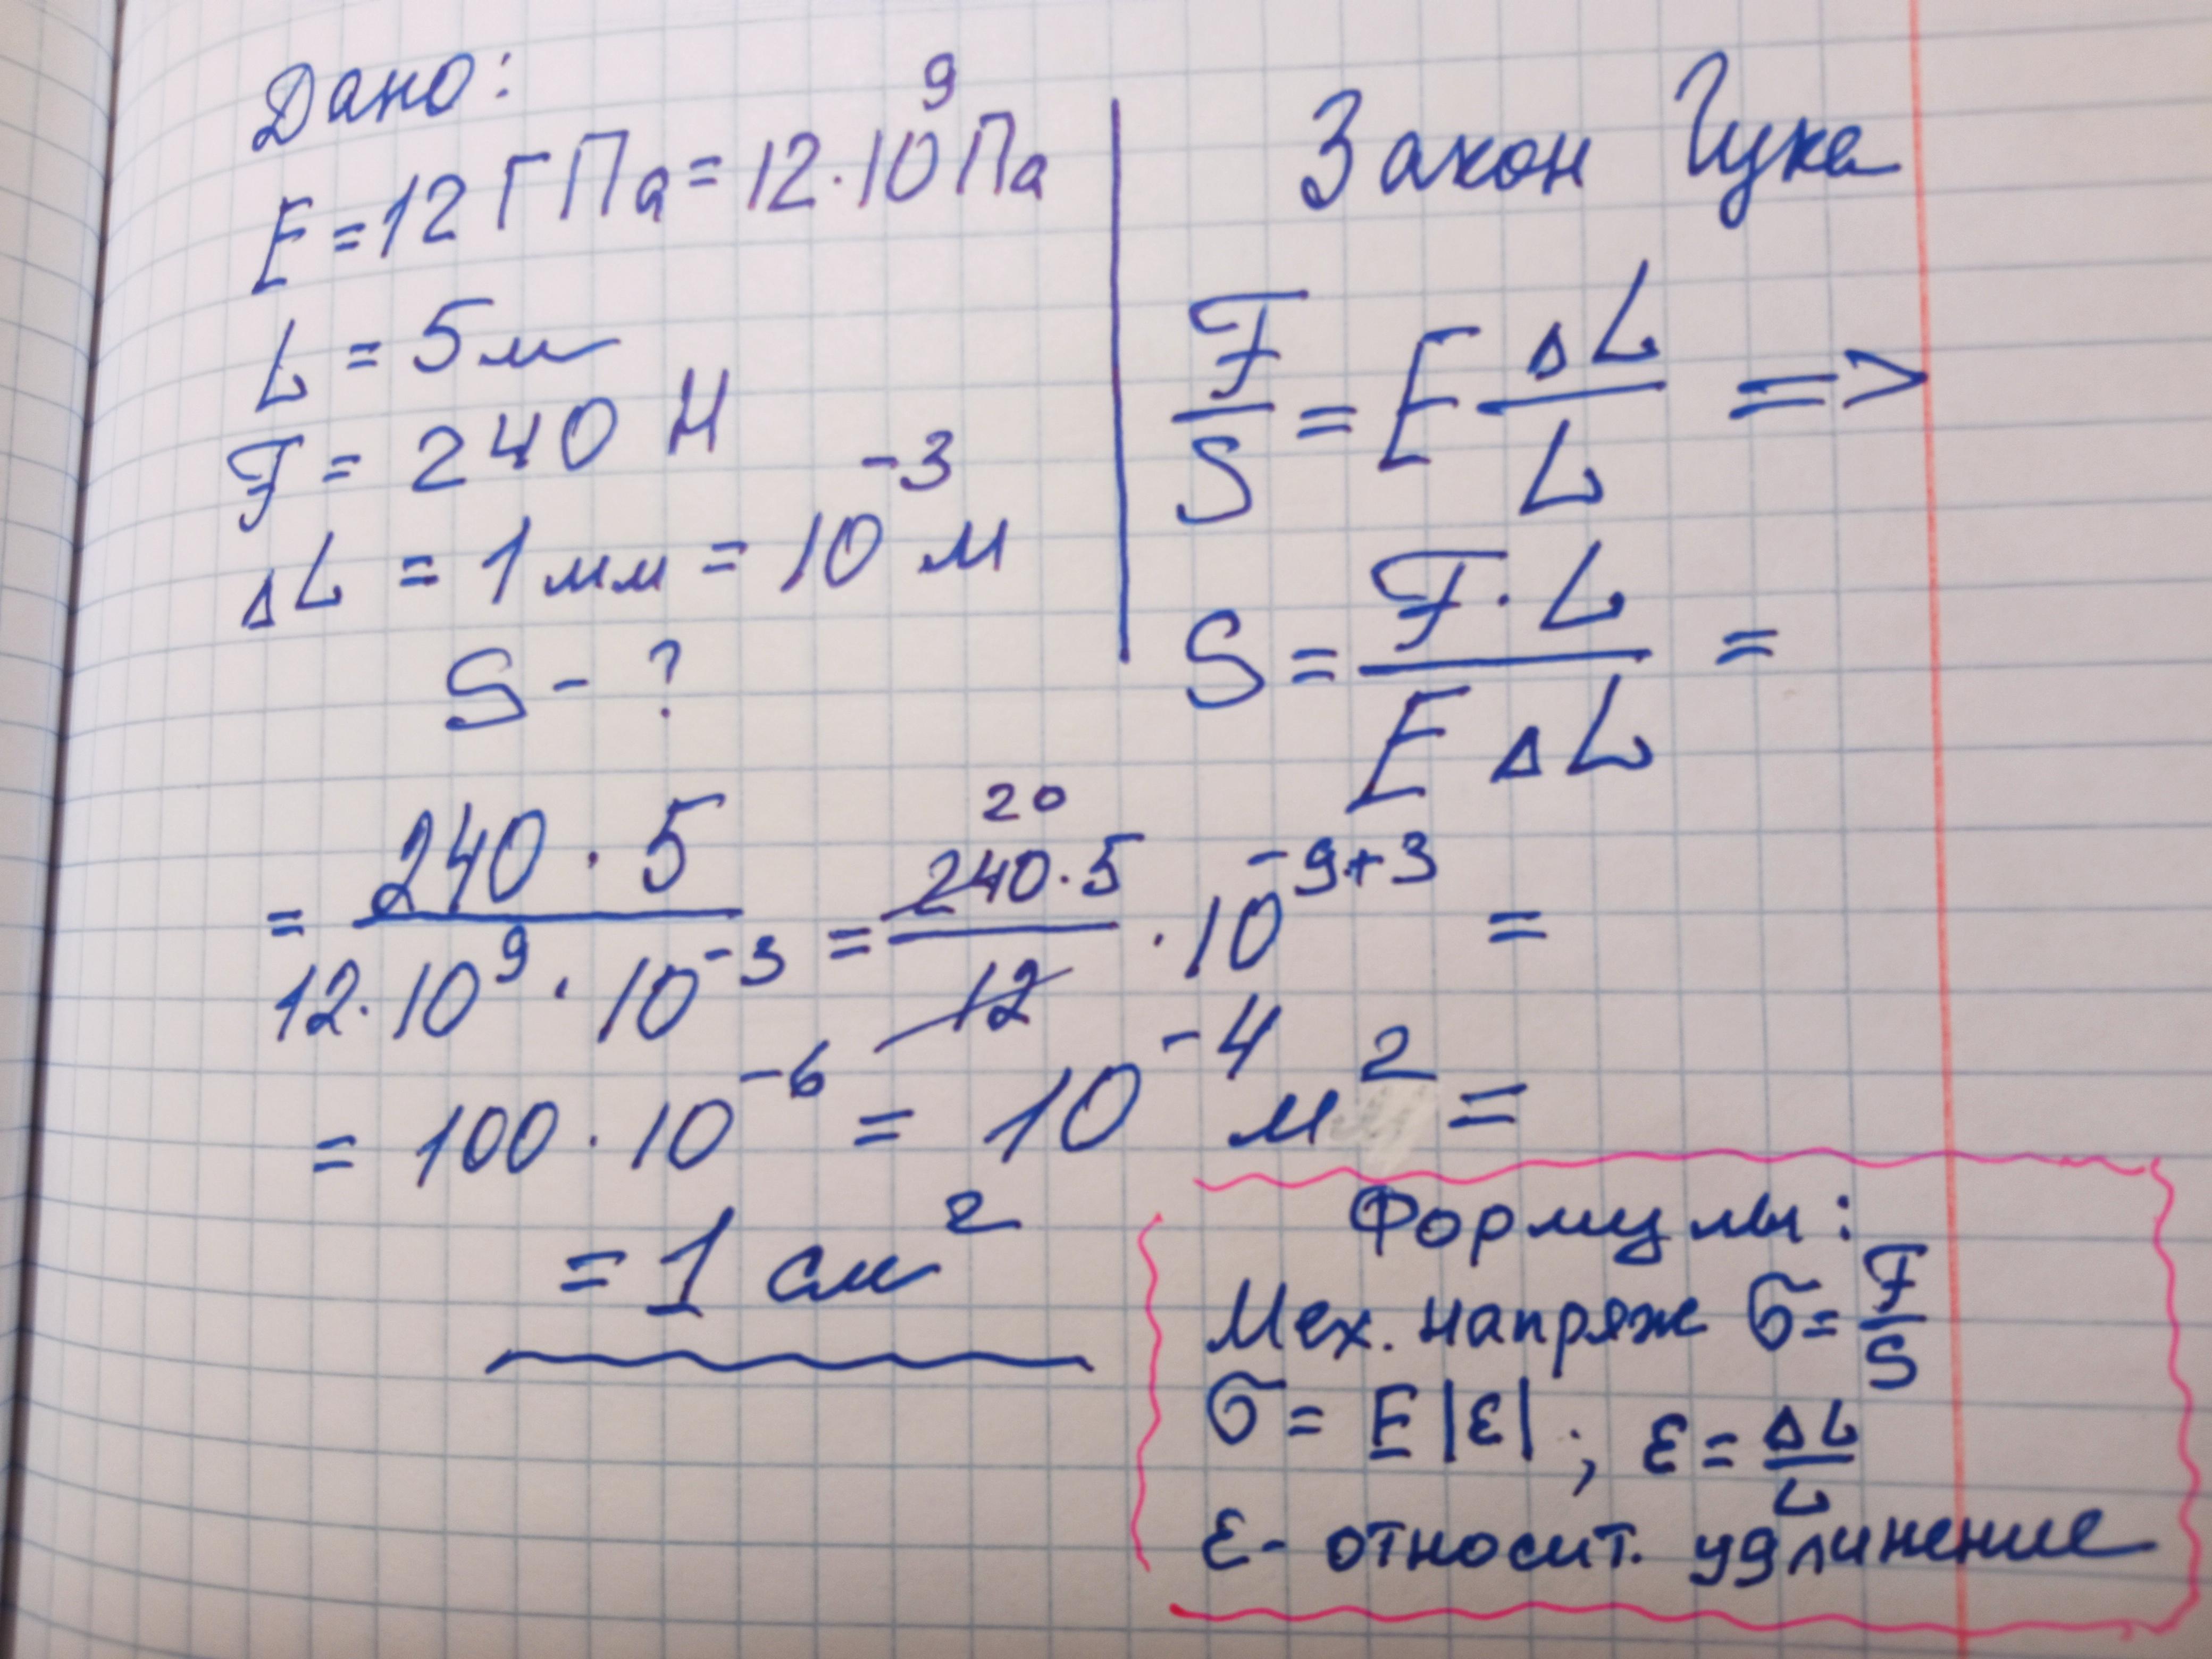 Дано:
E = 12 ГПа = 12·10⁹ Па
L = 5 м
F = 240 Н
ΔL = 1 мм = 10⁻³ м
S - ?
Закон Гука
F/S = E ΔL/L =>
S = F·L / E ΔL =
= 240·5 / 12·10⁹·10⁻³ = 20 240·5 / 12 · 10⁻⁹⁺³ =
= 100·10⁻⁶ = 10⁻⁴ м² =
= 1 см²
Формулы:
Мех. напряж σ = F/S
σ = E|ε| ; ε = ΔL/L
ε - относит. удлинение